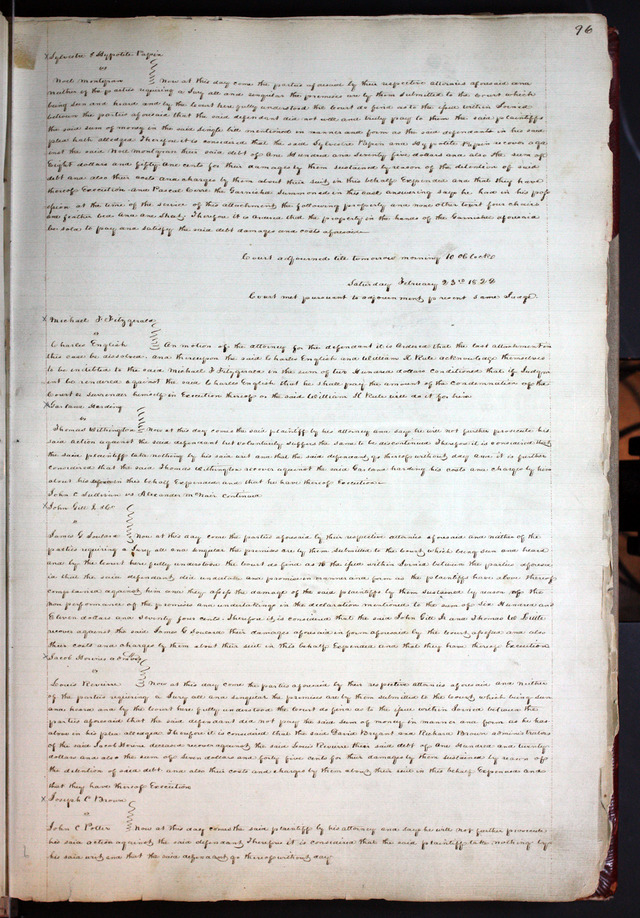 96
X Sylvestre & Hypolite Papin
vs
Noel Mongrain Now at this day come the parties aforesaid by their respective attornies aforesaid and
neither of the parties requiring a Jury all and singular the premises are by them submitted to the Court which
being seen and heard and by the Court here fully understood the Court do find as to the issue within Joined
between the parties aforesaid that the said defendant did not well and truly pay to them the said plaintiffs
the said sum of money in the said Single bill mentioned in manner and form as the said defendants in his said
plea hath alledged Therefore it is considered that the said Sylvestre Papin and Hypolite Papin recover aga
inst the said Noel mongrain their said debt of One Hundred and Seventy five dollars and also the sum of
Eight dollars and fifty one cents for their damages by them sustained by reason of the detention of said
debt and also their costs and charges by them about their suit in this behalf Expended and that they have
thereof Execution and Pascal Cerre the Garnishee Summoned in this case answering says he had in his poss
ession at the time of the service of this attachment the following property and none other to wit four chairs
one feather bed One and Therefore it is ordered that the property in the hands of the Garnishee aforesaid
be sold to pay and satisfy the said debt damages and costs aforesaid
Court adjourned till tomorrow morning 10 OClock
Saturday February 23rd 1828
Court met pursuant to adjournment present same Judge
X Michael F. Fitzgerald
vs
Charles English On motion of the attorney for the defendant it is Ordered that the last attachment in
this case be dissolved. And thereupon the said Charles English and William K Rule acknowledge themselves
to be indebted to the said Michael F Fitzgerald in the sum of two Hundred dollars conditioned that if Judgm
ent be rendered against the said Charles English that he shall pay the amount of the Condemnation of the
Court or surrender himself in Execution thereof or the said William K Rule will do it for him
X Garland Harding
vs
Thomas Withington Now at this day comes the said plaintiff by his attorney and says he will not further prosecute his
said action against the said defendant but voluntarily suffers the same to be discontinued Therefore it is considered that
the said plaintiff take nothing by his said writ and that the said defendant go thereof without day and it is further
considered that the said Thomas Withington recover against the said Garland harding his costs and charges by him
about his defence in this behalf Expended and that he have thereof Execution
John C Sullivan vs Alexander McNair continued
X John Gill Jr & Co
vs
James G Soulard Now at this day come the parties aforesaid by their respective attornies aforesaid and neither of the
parties requiring a Jury all and singular the premises are by them submitted to the Court which being seen and heard
and by the Court here fully understood the Court do find as to the issue within Joined between the parties aforesa
id that the said defendant did undertake and promise in manner and form as the plaintiffs have above thereof
complained against him and they assess the damage of the said plaintiffs by them sustained by reason of the
non performance of the promises and undertakings in the declaration mentioned to the sum of Six Hundred and
Eleven dollars and seventy four cents. Therefore it is considered that the said John Gill Jr and Thomas W Little
recover against the said James G Soulard their damages aforesaid in form aforesaid by the Court assessed and also
their costs and charges by them about their suit in this behalf Expended and that they have thereof Execution
X Jacob Horine admrs
vs
Louis Reviere Now at this day come the parties aforesaid by their respective attornies aforesaid and neither
of the parties requiring a Jury all and singular the premises are by them submitted to the Court, which being seen
and heard and by the Court here fully understood the Court do find as to the issue within Joined between the
parties aforesaid that the said defendant did not pay the said sum of money in manner and form as he has
above in his plea alledged Therefore it is considered that the said David Bryant and Richard Brown administrators
of the said Jacob Horine deceased recover against the said Louis Reviere their said debt of One Hundred and twenty
dollars and also the sum of seven dollars and forty five cents for their damages by them sustained by reason of
the detention of said debt and also their costs and charges by them about their suit in this behalf Expended and
that they have thereof Execution
X Joseph C Brown
vs
John C Potter Now at this day comes the said plaintiff by his attorney and says he will not further prosecute
his said action against the said defendant Therefore it is considered that the said plaintiff take nothing by
his said writ and that the said defendant go thereof without day